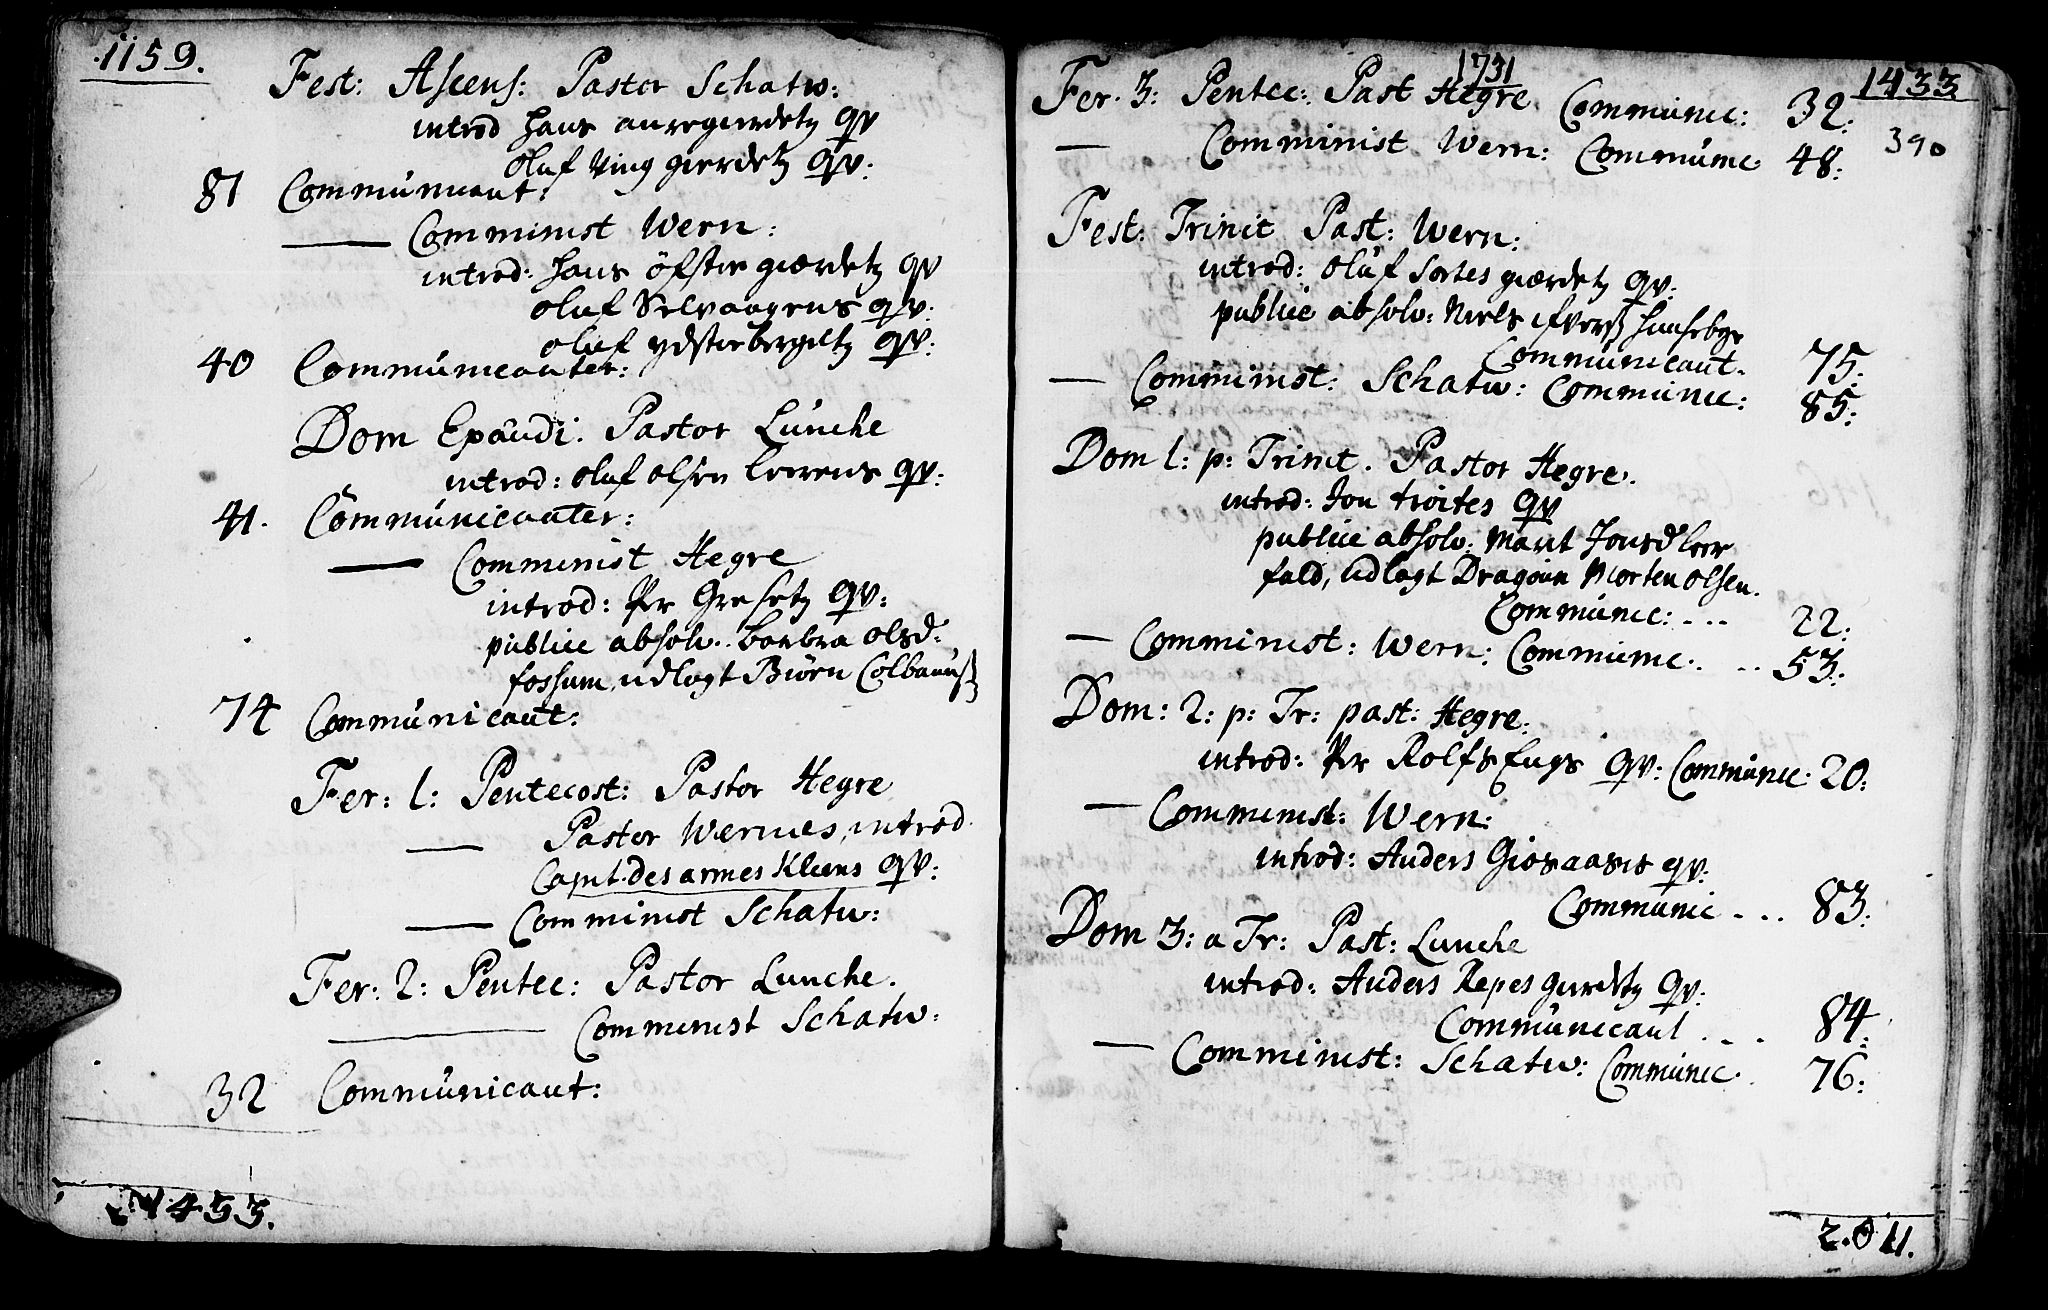 1159.
Fest: Ascens: Pastor Schatw:
introd Hans aunegierdetz qv
Oluf Ving gierdetz qv:
81 Communicant:
— Comminist Wern:
introd: Hans öfstie giærdetz qv
Oluf Selvaagens qv:
Oluf ydstiebergeltz qv:
40 Communicanter:
Dom Exaudi. Pastor Lunche
introd: Oluf Olsen Leerens qv:
41. Communicanter:
— Comminist Hegre
introd: Per Gresetz qv:
publice absolv. Barbra Olsd:
fossum, udlagt Biörn Colbanus
74 Communicant:
Fer: 1: Pentecost: Pastor Hegre
— Pastor Wernes, introd
Capit. des armes Kleens qv:
— Comminist Schatw:
Fer: 2: Pentec: Pastor Lunche.
— Comminist Schatw:
32 Communicant:
1433.
1731
1433
390
Fer. 3: Pentec: Past Hegre Communic: 32:
— Comminist Wern: Communic 48:
Fest: Trinit Past: Wern:
introd: Oluf Sortes giærdetz qv:
publice absolv: Niels ifverss
Communicant. 75:
— Comminist: Schatw: Communic: 85:
Dom 1: p: Trinit. Pastor Hegre.
introd: Jon troites qv
publice absolv: Marit Jonsd leer
fald, udlagt Dragoun Morten Olsen.
Communic: ... 22:
— Comminist: Wern: Communic. .. 53:
Dom: 2: p: Tr: past: Hegre:
introd: Per Rolfs Engs qv: Communic: 20:
— Comminist: Wern:
introd: Anders Giosaasis qv:
Communic ... 83:
Dom 3: a Tr: Past: Lunche
introd: Anders Repes gierdetz qv:
Communicant .... 84:
— Comminist: Schatw: Communic. 76:
2.011.